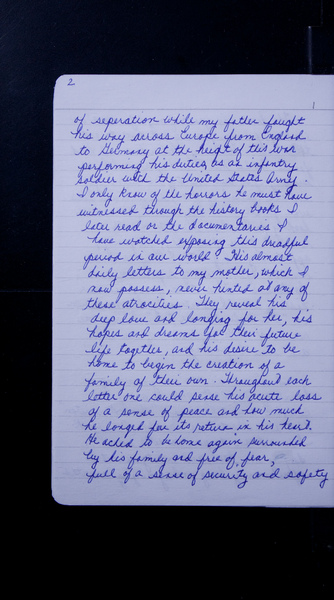 2
of seperation while my father fought
his way across Europe from England
to Germany at the height of this war
performing his duties as an infantry
soldier with the United States Army.
I only know of the horrors he must have
witnessed through the history books I
later read or the documentaries I
have watched exposing this dreadful
period in our world. His almost
daily letters to my mother, which I
now possess, never hinted at any of
these atrocities. They reveal his
deep love and longing for her, his
hopes and dreams for their future
life together, and his desire to be
home to begin the creation of a
family of their own. Throughout each
letter one could sense his acute loss
of a sense of peace and how much
he longed for its return in his heart.
He ached to be home again surrounded
by his family and free of fear,
full of a sense of security and safety